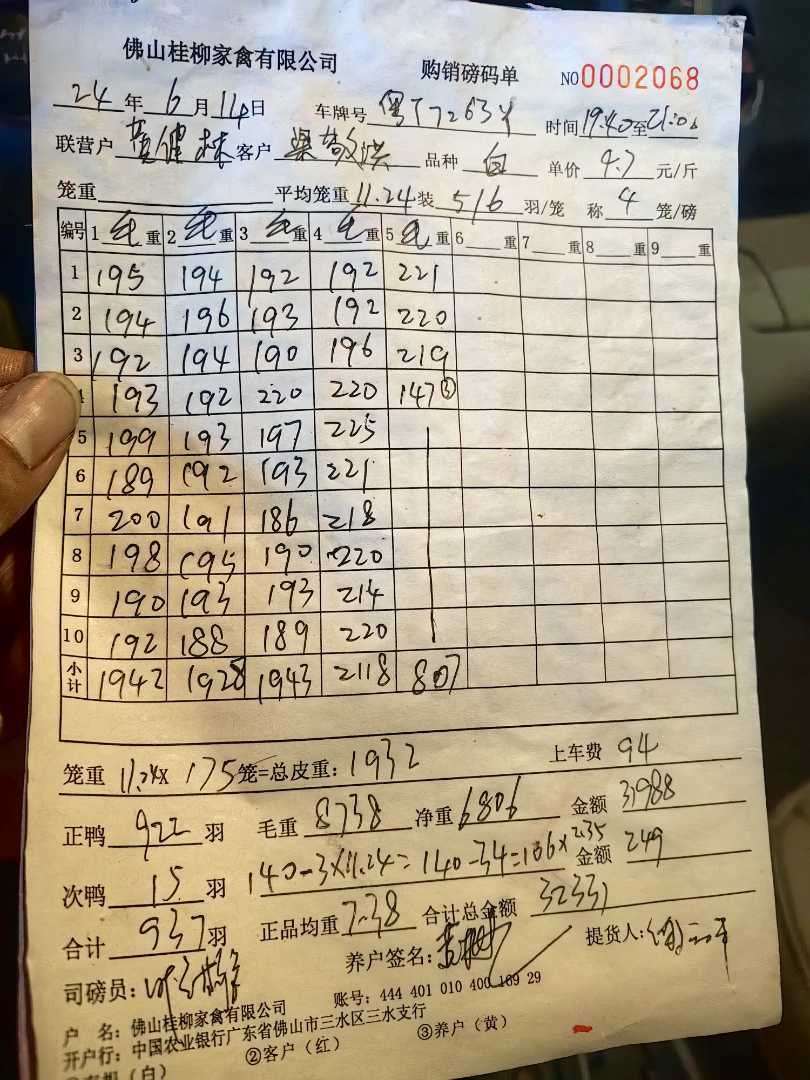 佛山桂柳家禽有限公司 购销磅码单 NO0002068
24年6月14日 车牌号 粤T7263Y 时间19:40至21:06
联营户 黄健林 客户 梁敬洪 品种 白 单价 4.7 元/斤
笼重 平均笼重11.24装 5/6 羽/笼 称 4 笼/磅
编号 1毛重 2毛重 3毛重 4毛重 5毛重 6重 7重 8重 9重
1 195 194 192 192 221
2 194 196 193 192 220
3 192 194 190 196 219
193 192 220 220 147③
5 199 193 197 225
6 189 192 193 221
7 200 191 186 218
8 198 195 190 220
9 190 193 193 214
10 192 188 189 220
小计 1942 1928 1943 2118 807
笼重 11.24X 175笼=总皮重:1932 上车费 94
正鸭 922 羽 毛重 8738 净重 6806 金额 31988
次鸭 15 羽 140-3×11.24=140-34=106×2.35 金额 249
合计 937羽 正品均重7.38 合计总金额 32331
司磅员: 养户签名: 提货人:
户 名:佛山桂柳家禽有限公司 账号:444 401 010 400 169 29
开户行:中国农业银行广东省佛山市三水区三水支行
(白) ②客户(红) ③养户(黄)